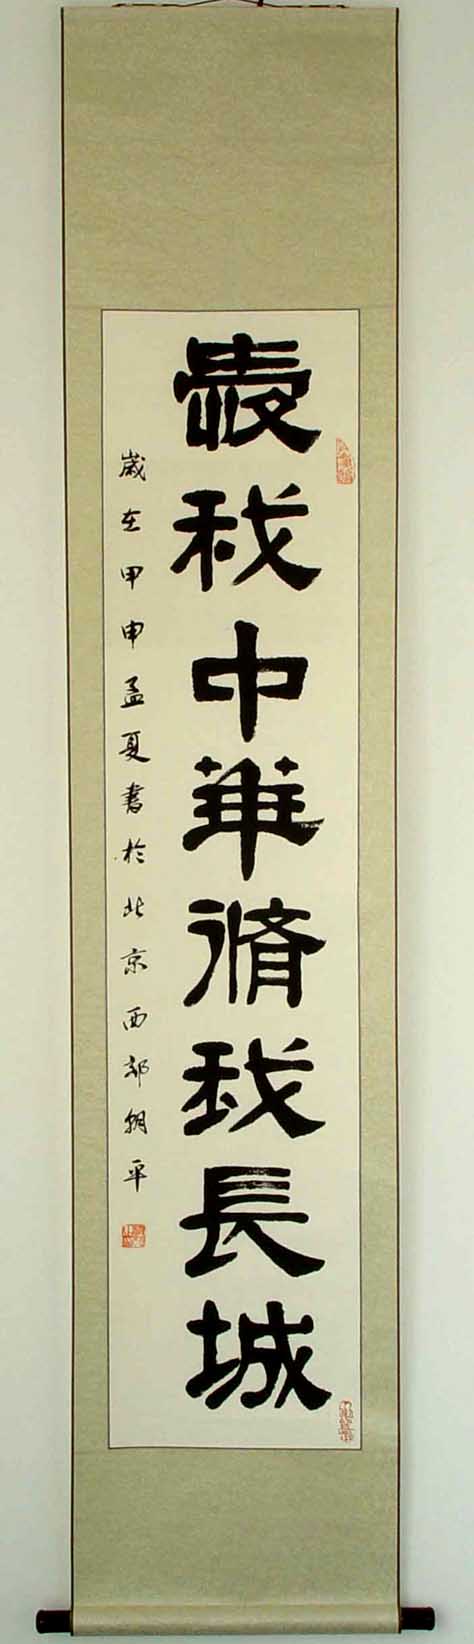 愛我中華脩我長城
歲在甲申孟夏書於北京西郊朝平